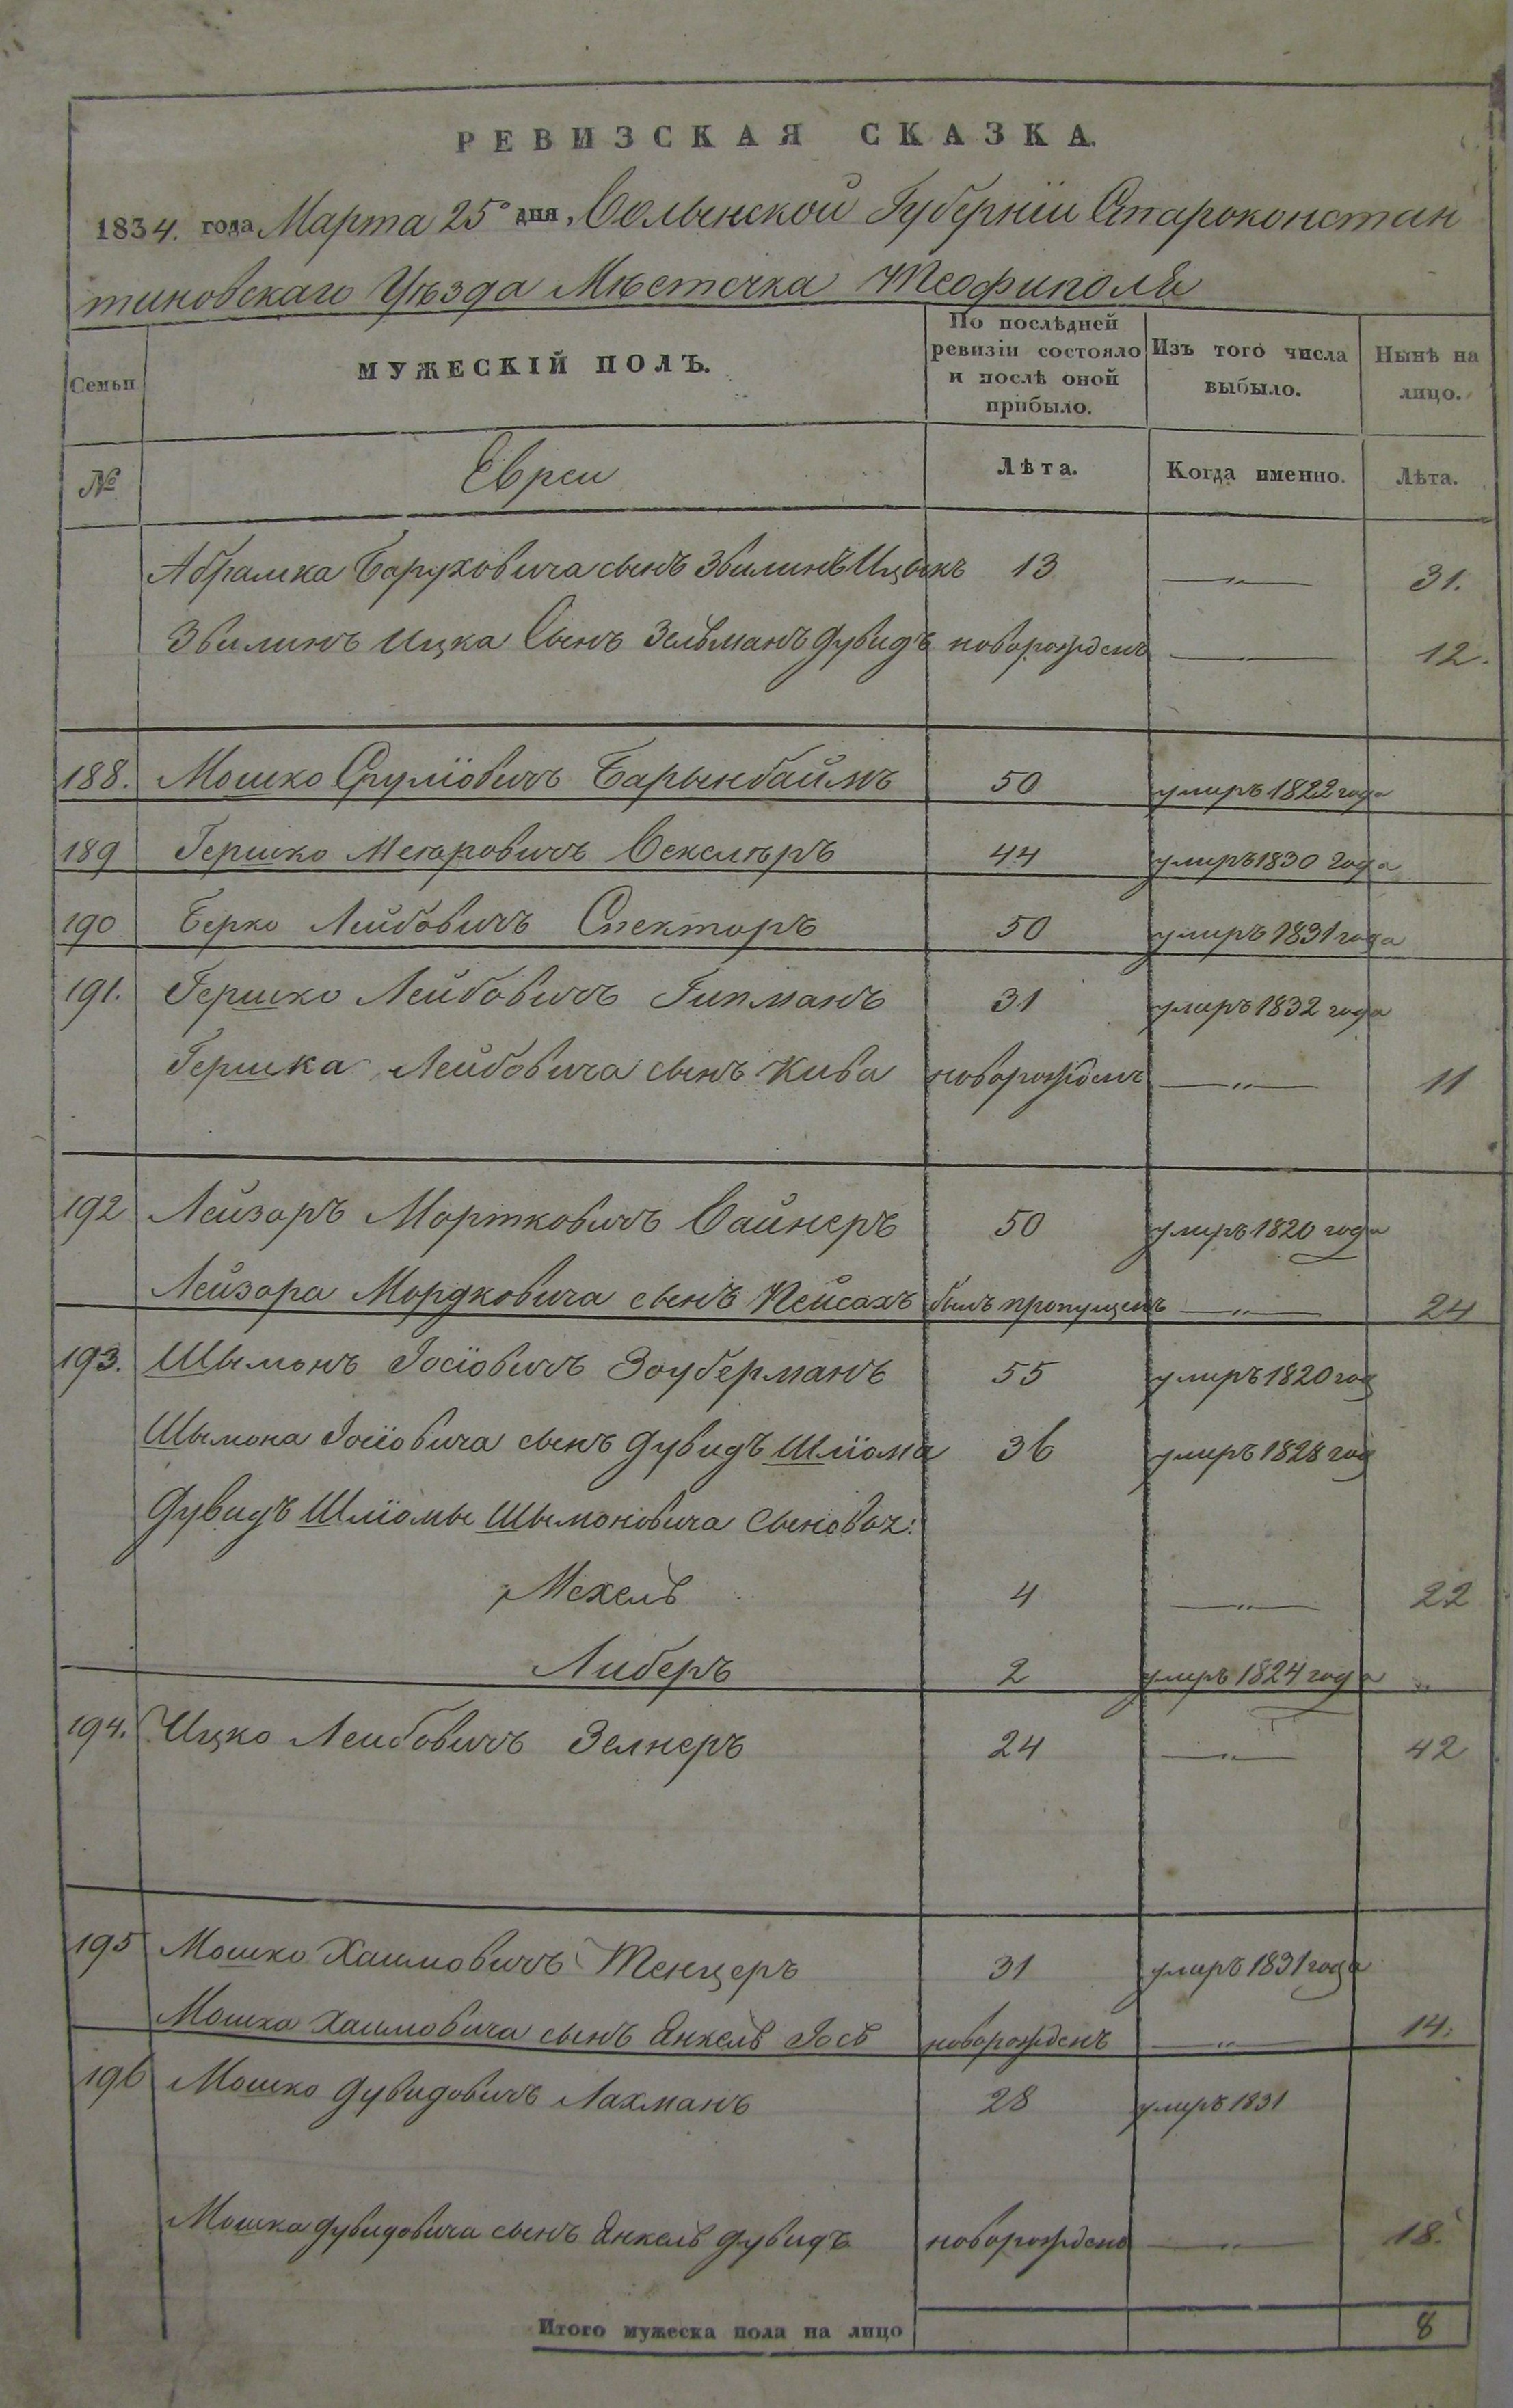 РЕВИЗСКАЯ СКАЗКА.
1834. года Марта 25º дня, Волынской Губерніи Староконстан
тиновскаго Уѣзда Мѣстечка Теофиполя
Семьи
МУЖЕСКІЙ ПОЛЪ.
По послѣдней ревизіи состояло и послѣ оной прибыло.
Изъ того числа выбыло.
Нынѣ на лицо.
№
Евреи
Лѣта.
Когда именно.
Лѣта.
Абрамка Баруховича сынъ Звилинъ Ицькъ 13 —„— 31.
Звилинъ Ицка Сынъ Зельманъ Дувидъ новорожденъ —„— 12.
188. Мошко Сруліовичъ Барынбаймъ 50 умиръ 1822 года
189 Гершко Меіоровичъ Векслѣръ 44 умиръ 1830 года
190 Берко Лейбовичъ Спекторъ 50 умиръ 1831 года
191. Гершко Лейбовичъ Гипманъ 31 умиръ 1832 года
Гершка Лейбовича сынъ Кива новорожденъ —„— 11
192 Лейзоръ Мортковичъ Вайнеръ 50 умиръ 1820 года
Лейзора Мордковича сынъ Пейсахъ былъ пропущенъ —„— 24
193. Шымонъ Іосіовичъ Зоуберманъ 55 умиръ 1820 год
Шымона Іосіовича сынъ Дувидъ Шліома 36 умиръ 1828 год
Дувидъ Шліомы Шымоновича Сыновья:
Мехель 4 —„— 22
Либеръ 2 умиръ 1824 года „
194. Ицко Лейбовичъ Зелнеръ 24 —„— 42
195 Мошко Хаимовичъ Тенцеръ 31 умиръ 1831 года
Мошка Хаимовича сынъ Янкель Іось новорожденъ —„— 14.
196 Мошко Дувидовичъ Лахманъ 28 умиръ 1831
Мошка Дувидовича сынъ Янкель Дувидъ новорожденъ —„— 18.
Итого мужеска пола на лицо 8